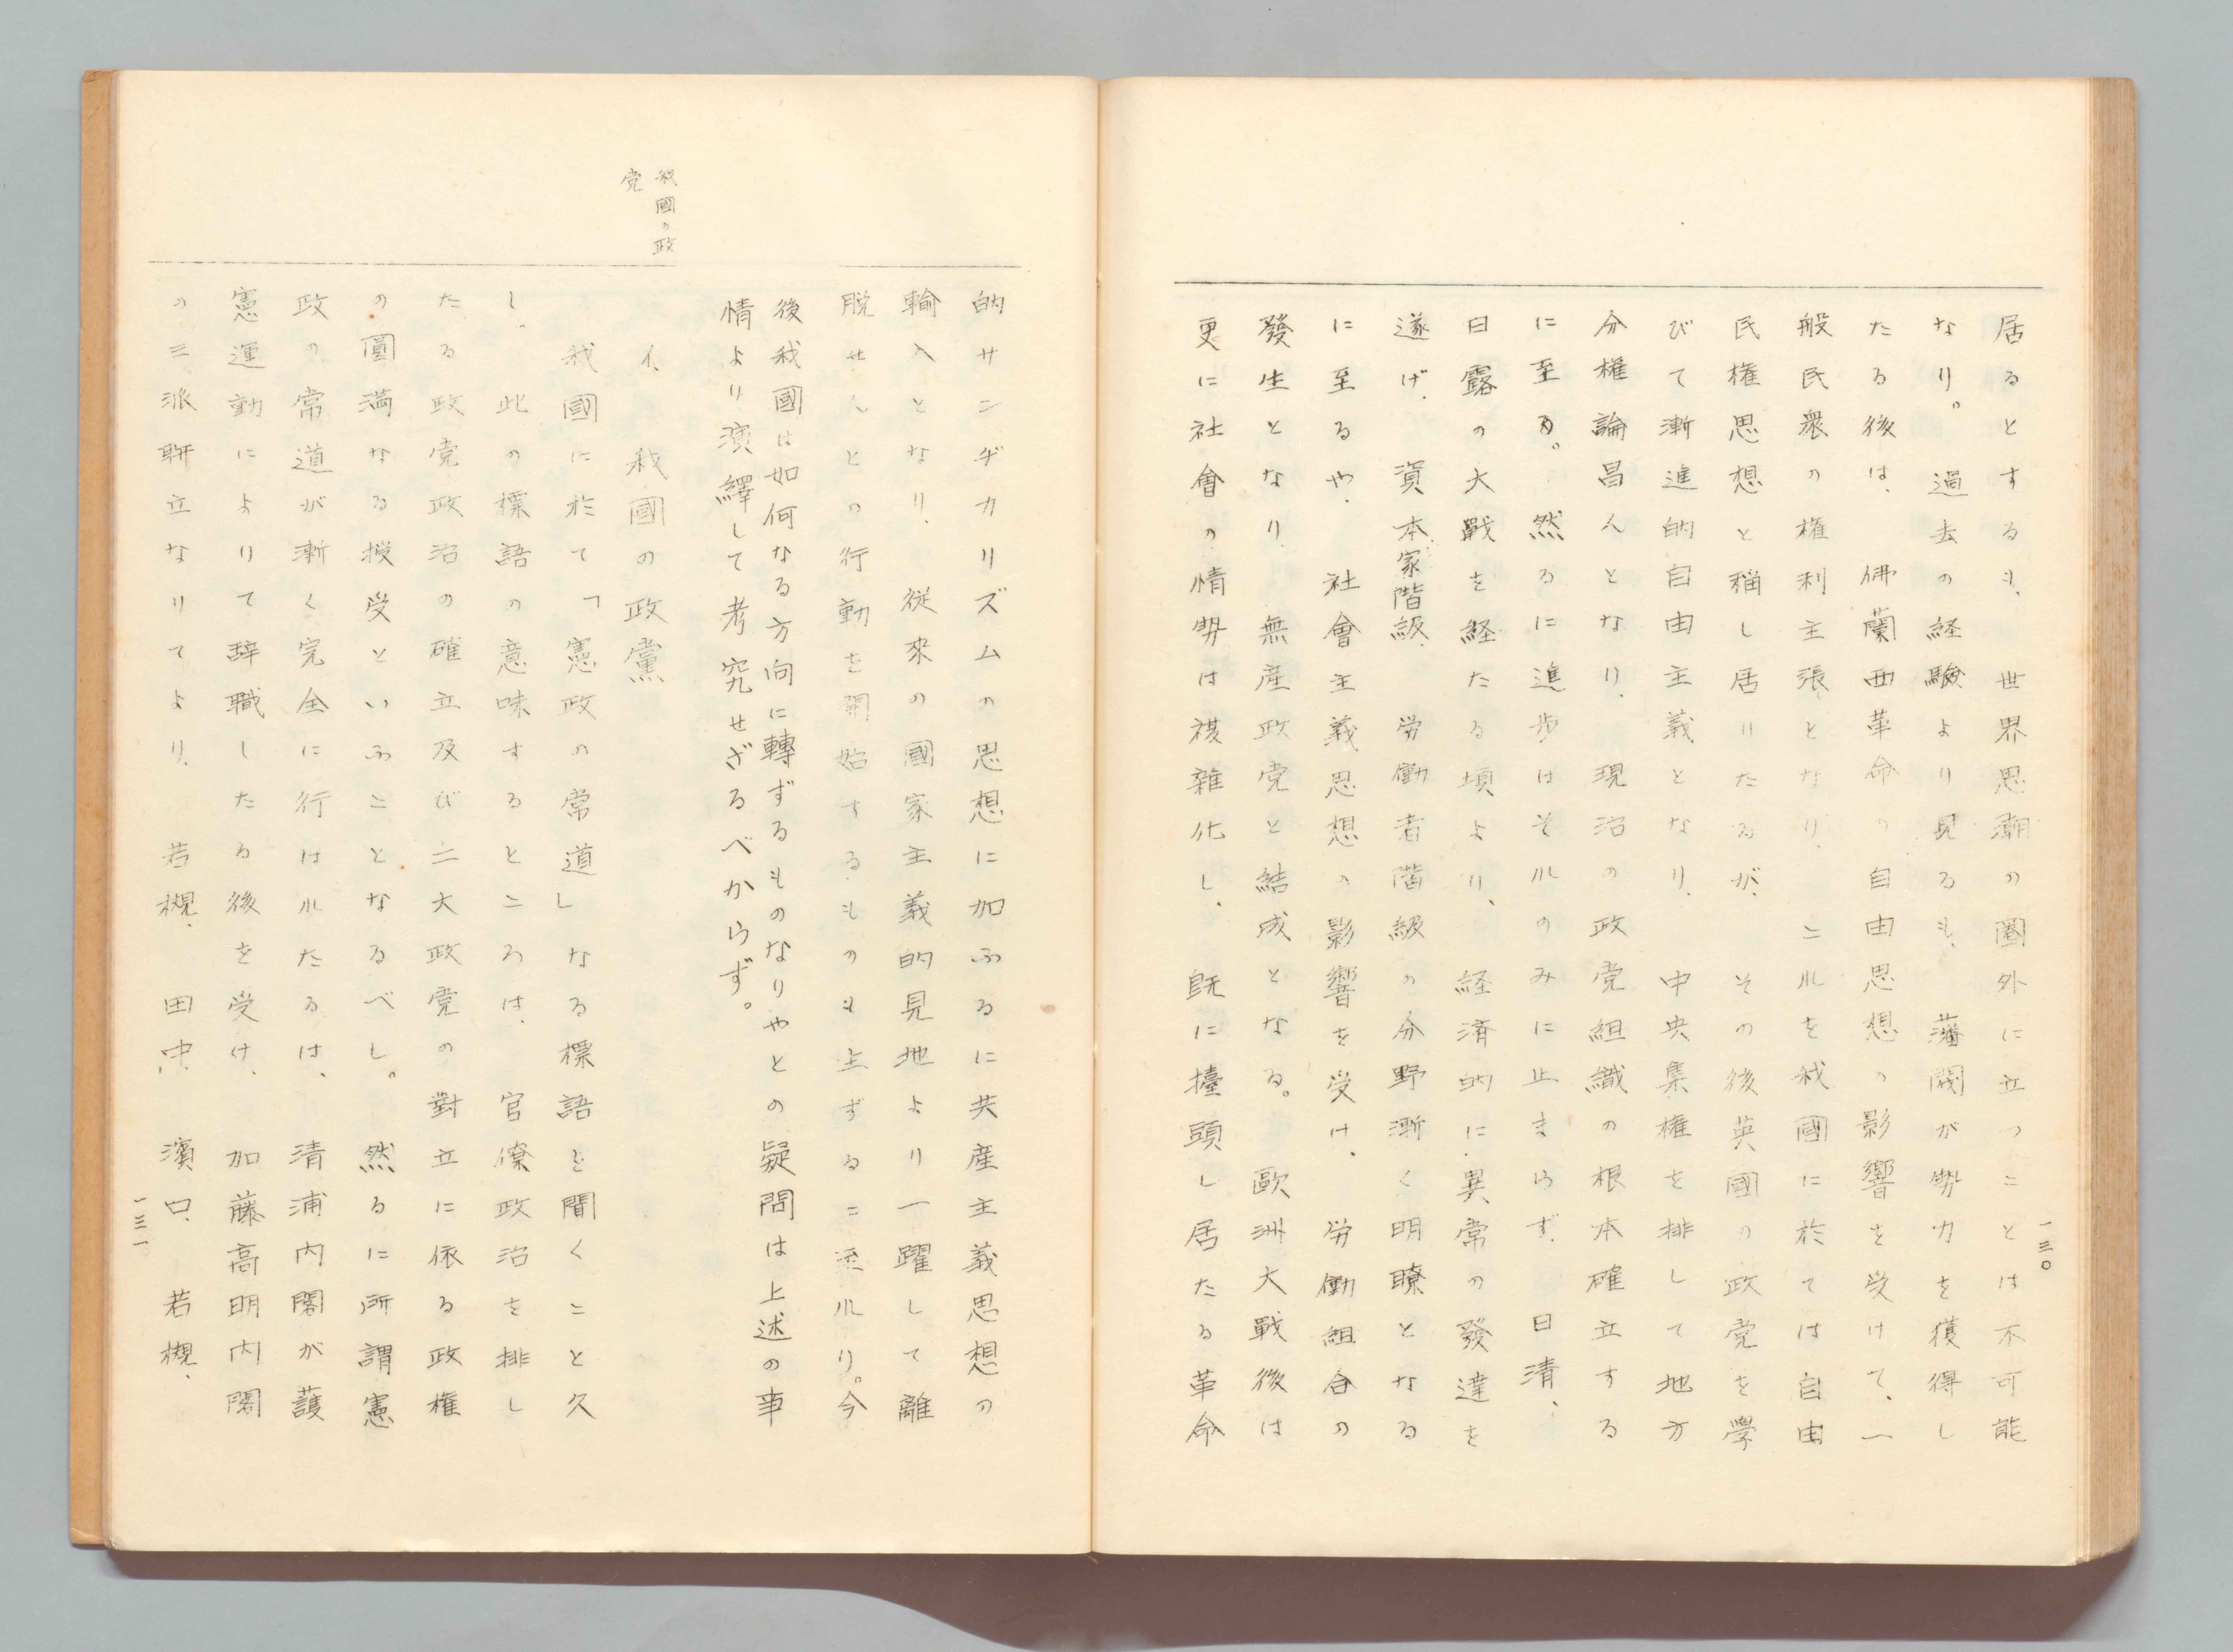 一三〇
居るとするも、世界思潮の圏外に立つことは不可能
なり。過去の経験より見るも、藩閥が勢力を獲得し
たる後は、佛蘭西革命の自由思想の影響を受けて、一
般民衆の権利主張となり、これを我國に於ては自由
民権思想と稱し居りたるが、その後英國の政党を學
びて漸進的自由主義となり、中央集権を排して地方
分権論昌んとなり、現治の政党組織の根本確立する
に至る。然るに進歩はそれのみに止まらず、日清、
日露の大戰を経たる頃より、経済的に異常の發達を
遂げ、資本家階級、労働者階級の分野漸く明瞭となる
に至るや、社會主義思想の影響を受け、労働組合の
發生となり、無産政党と結成となる。歐洲大戰後は
更に社會の情勢は複雜化し、既に擡頭し居たる革命
的サンヂカリズムの思想に加ふるに共産主義思想の
輸入となり、従來の國家主義的見地より一躍して離
脱せんとの行動を開始するものも生ずるに至れり。今
後我國は如何なる方向に轉ずるものなりやとの疑問は上述の事
情より演繹して考究せざるべからず。
我國の政
党
イ、我國の政黨
我國に於て「憲政の常道」なる標語を聞くこと久
し。此の標語の意味するところは、官僚政治を排し
たる政党政治の確立及び二大政党の對立に依る政権
の圓満なる授受といふことなるべし。然るに所謂憲
政の常道が漸く完全に行はれたるは、清浦内閣が護
憲運動によりて辞職したる後を受け、加藤高明内閣
の三派聨立なりてより、若槻、田中、濱口、若槻、
一三一